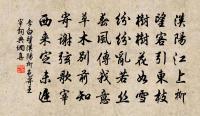 漢陽江上柳
望客引東枝
樹樹花如雪
紛紛亂若絲
春風傳我意
草木別前知
寄謝弦歌宰
西來定未遲
李白望漢陽柳色寄王
宰詞典網